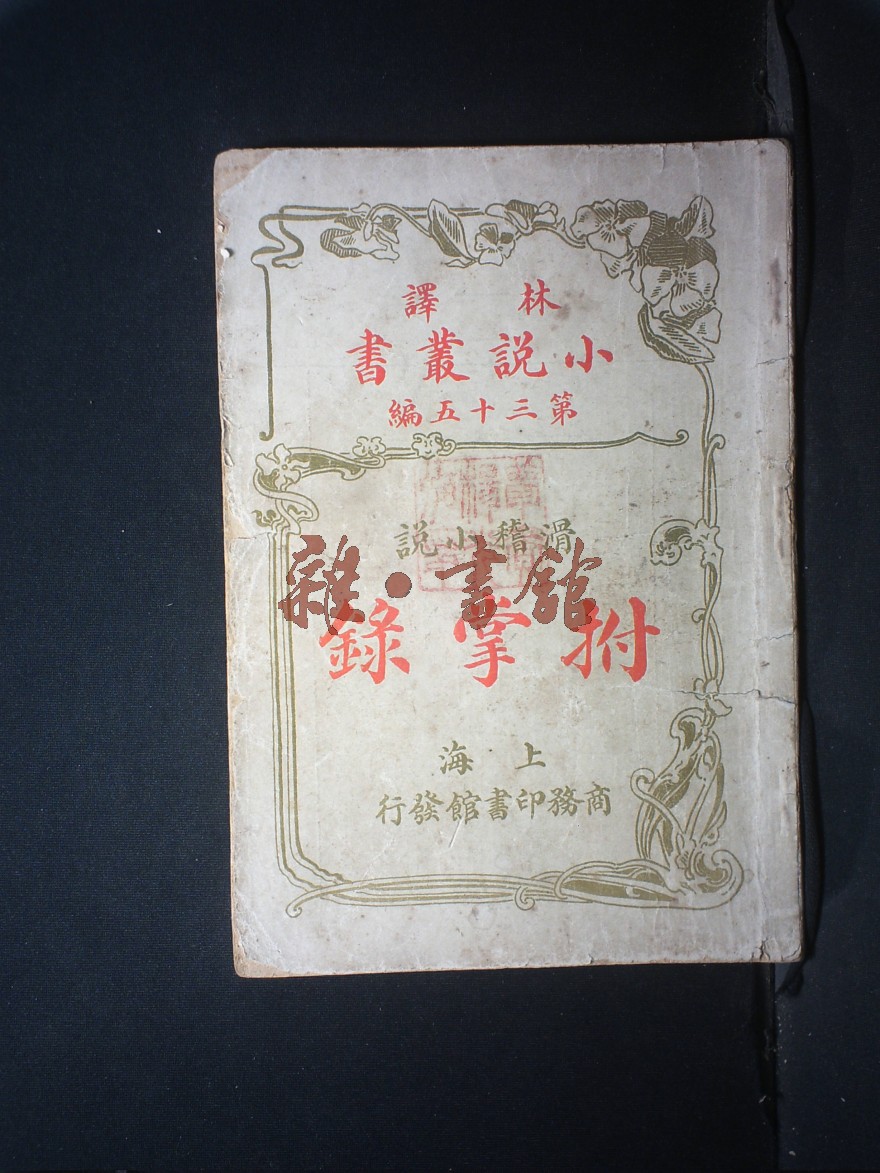 林譯
小説叢書
第三十五編
滑稽小説
雜·書館
拊掌錄
上海
商務印書館發行